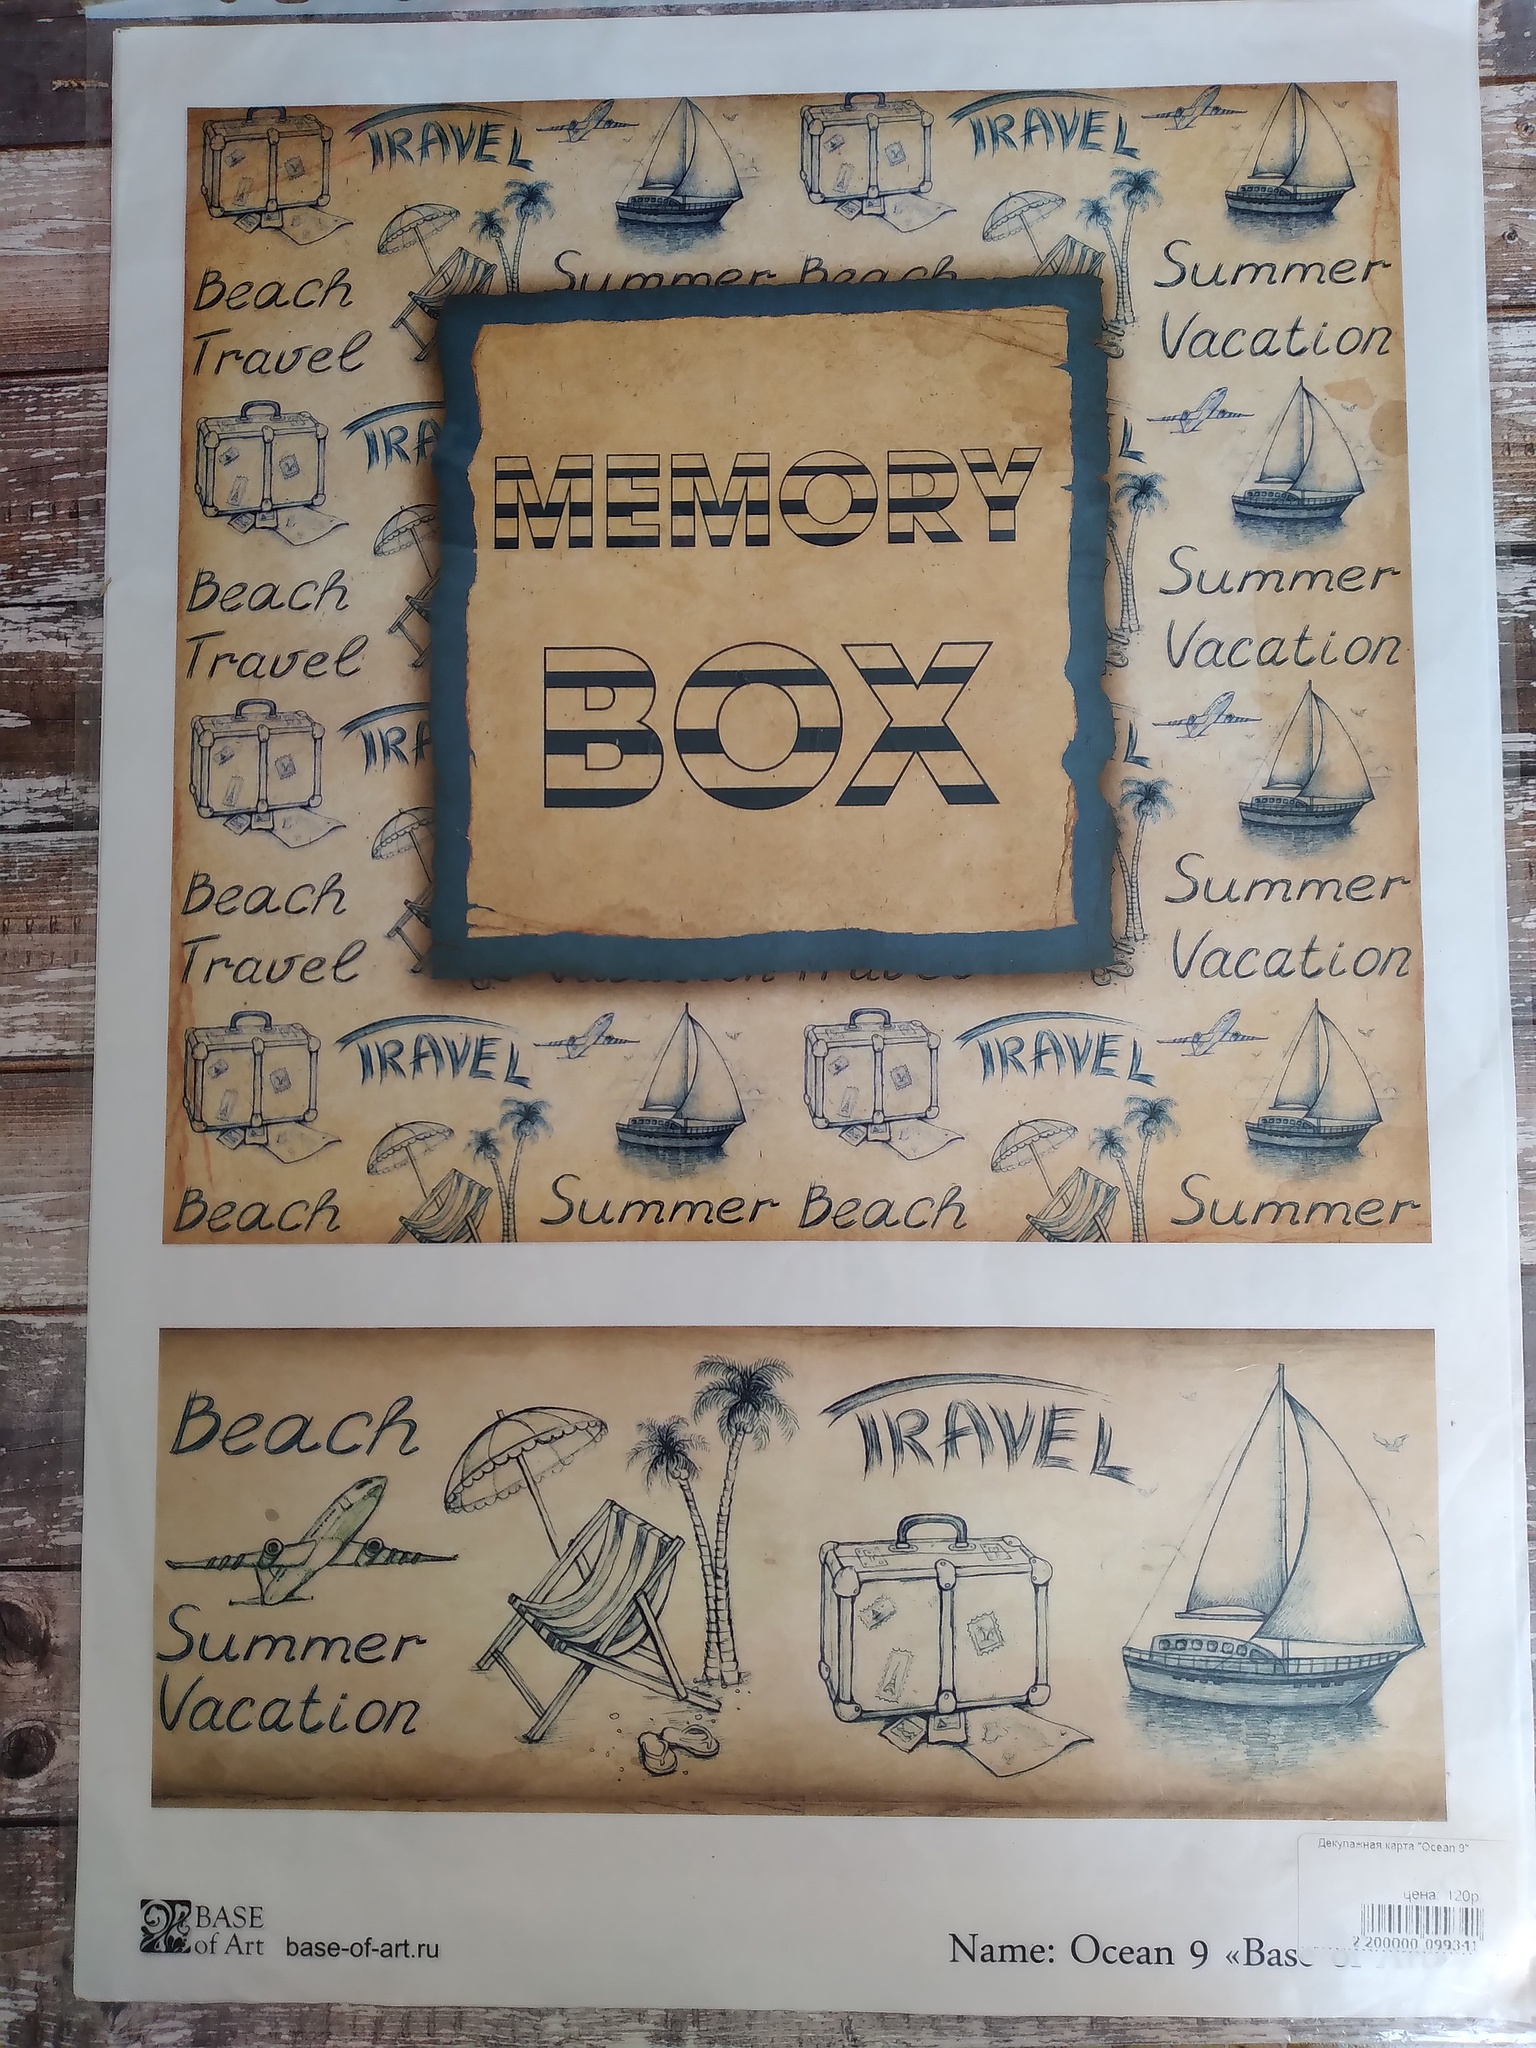 TRAVEL TRAVEL
Beach Summer Beach Summer
Travel Vacation
TRA L
MEMORY
Beach Summer
Travel Vacation
BOX
TRA L
Beach Summer
Travel Vacation
Vacation Travel
TRAVEL TRAVEL
Beach Summer Beach Summer
Beach TRAVEL
Summer
Vacation
Декупажная карта "Ocean 9"
цена: 120р
2 200000 099311
BASE
of Art base-of-art.ru
Name: Ocean 9 «Base of Art»